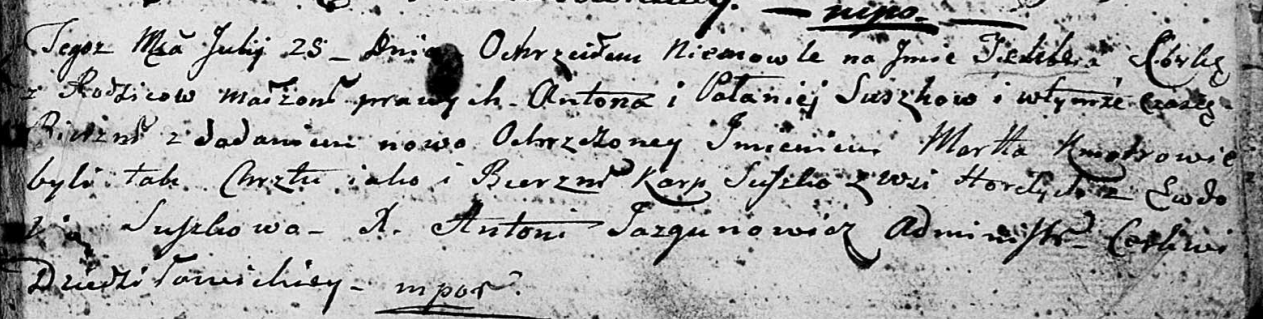 mpo.
Tegoz Mca Julij 28 - Dnia Ochrzciłem Niemowle na Jmie Corkę
z Rodzicow małzoń prawych. Antona i Pałanieij Suszkow i wtymze czasie
Bierzm z dodaniem nowo Ochrzczoney Imieniem Marta Kmotrowie
byli tak Chrztu iako i Bierzm Karp Suszko z wsi Ewdo
kia Suszkowa - X. Antoni Jazgunowicz Administr Cerkwi
Dziedziłowickiey - mpor